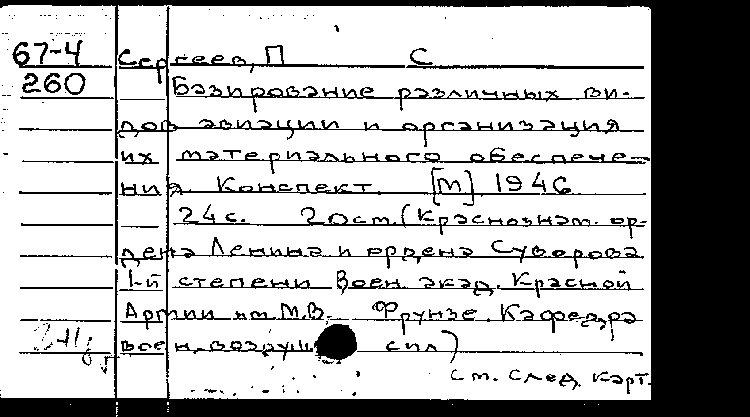 67-4 Сергеев, П С
260 Базирование различных ви-
дов авиации и организация
их материального обеспече-
ния. Конспект. [М] 1946
24 с. 20 см. (Краснознам. ор-
дена Ленина и ордена Суворова
1-й степени Воен. акад. Красной
Армии им. М.В. Фрунзе. Кафедра
воен. воздуш сил)
См. след. карт.